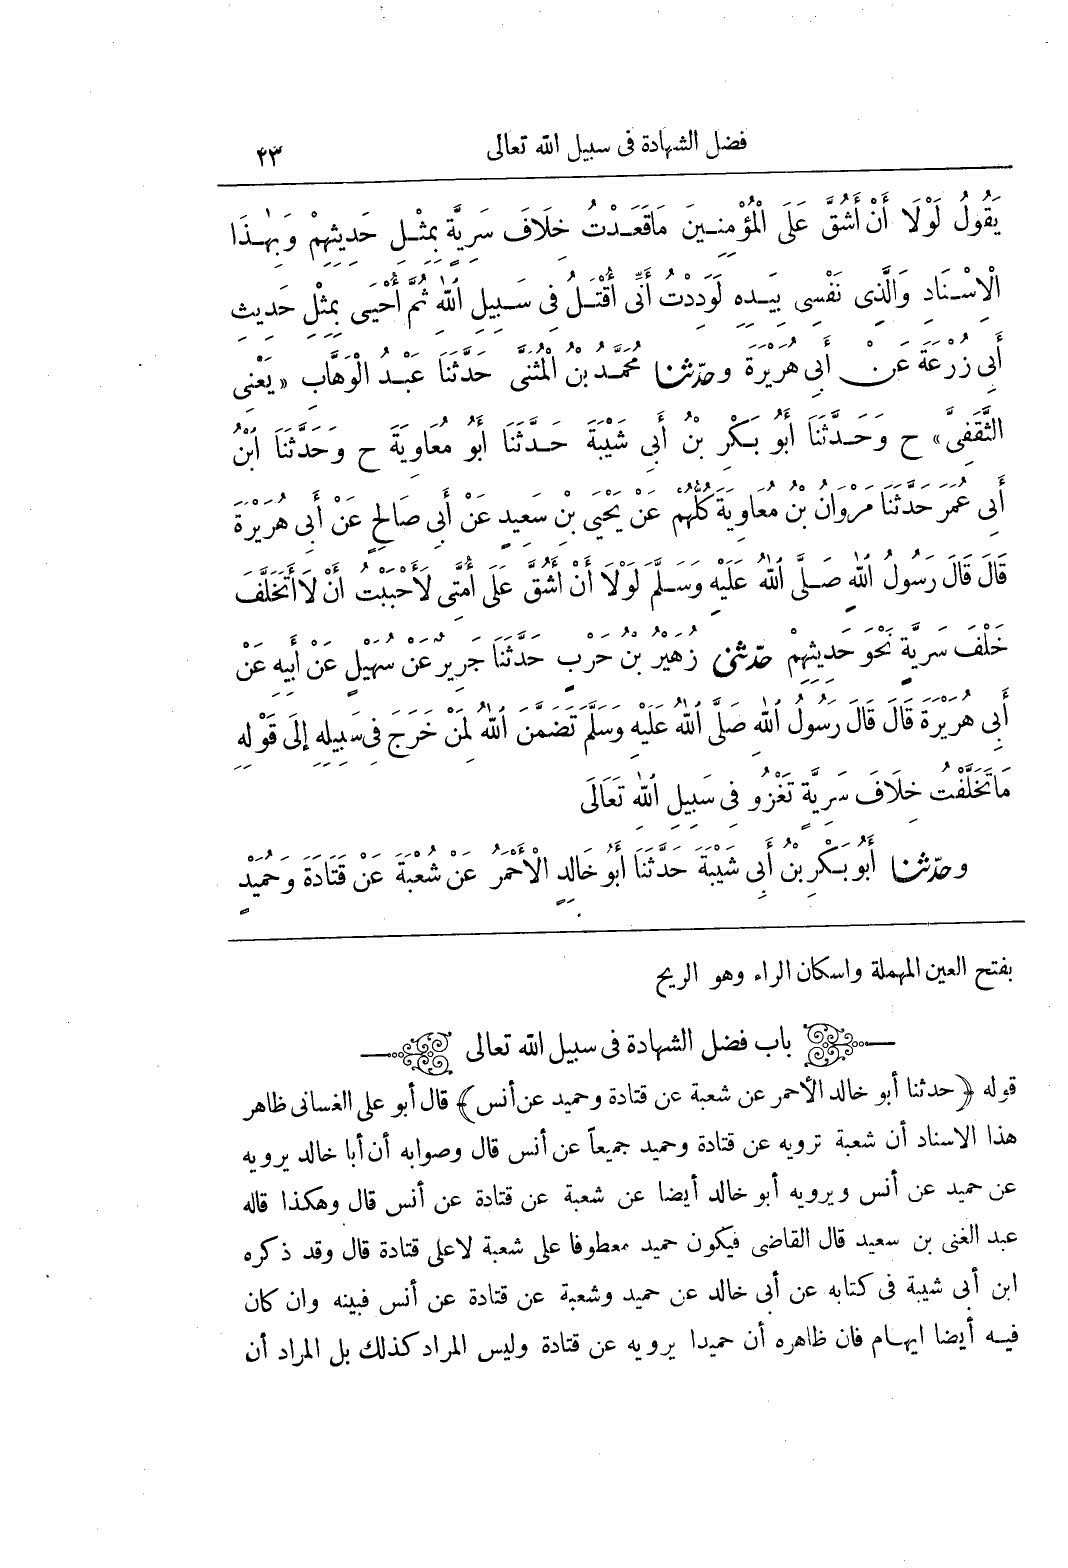 فضل الشهادة فى سبيل الله تعالى ٢٣
يَقُولُ لَوْلَا أَنْ أَشُقَّ عَلَى الْمُؤْمِنِينَ مَاقَعَدْتُ خِلَافَ سَرِيَّةٍ بِمِثْلِ حَدِيثِهِمْ وَبِهٰذَا
الْإِسْنَادِ وَالَّذِى نَفْسِى بِيَدِهِ لَوَدِدْتُ أَنِّى أُقْتَلُ فِى سَبِيلِ اللّٰهِ ثُمَّ أُحْيَى بِمِثْلِ حَدِيثِ
أَبِى زُرْعَةَ عَنْ أَبِى هُرَيْرَةَ وحدّثنا مُحَمَّدُ بْنُ الْمُثَنَّى حَدَّثَنَا عَبْدُ الْوَهَّابِ «يَعْنِى
الثَّقَفِىَّ» ح وَحَدَّثَنَا أَبُو بَكْرِ بْنُ أَبِى شَيْبَةَ حَدَّثَنَا أَبُو مُعَاوِيَةَ ح وَحَدَّثَنَا ابْنُ
أَبِى عُمَرَ حَدَّثَنَا مَرْوَانُ بْنُ مُعَاوِيَةَ كُلُّهُمْ عَنْ يَحْيَى بْنِ سَعِيدٍ عَنْ أَبِى صَالِحٍ عَنْ أَبِى هُرَيْرَةَ
قَالَ قَالَ رَسُولُ اللّٰهِ صَلَّى اللّٰهُ عَلَيْهِ وَسَلَّمَ لَوْلَا أَنْ أَشُقَّ عَلَى أُمَّتِى لَأَحْبَبْتُ أَنْ لَا أَتَخَلَّفَ
خَلْفَ سَرِيَّةٍ نَحْوَ حَدِيثِهِمْ حدّثنى زُهَيْرُ بْنُ حَرْبٍ حَدَّثَنَا جَرِيرٌ عَنْ سُهَيْلٍ عَنْ أَبِيهِ عَنْ
أَبِى هُرَيْرَةَ قَالَ قَالَ رَسُولُ اللّٰهِ صَلَّى اللّٰهُ عَلَيْهِ وَسَلَّمَ تَضَمَّنَ اللّٰهُ لِمَنْ خَرَجَ فِى سَبِيلِهِ إِلَى قَوْلِهِ
مَاتَخَلَّفْتُ خِلَافَ سَرِيَّةٍ تَغْزُو فِى سَبِيلِ اللّٰهِ تَعَالَى
وحدّثنا أَبُو بَكْرِ بْنُ أَبِى شَيْبَةَ حَدَّثَنَا أَبُو خَالِدٍ الْأَحْمَرُ عَنْ شُعْبَةَ عَنْ قَتَادَةَ وَحُمَيْدٍ
بفتح العين المهملة واسكان الراء وهو الريح
باب فضل الشهادة فى سبيل الله تعالى
قوله ﴿حدثنا أبو خالد الأحمر عن شعبة عن قتادة وحميد عن أنس﴾ قال أبو على الغسانى ظاهر
هذا الاسناد أن شعبة ترويه عن قتادة وحميد جميعاً عن أنس قال وصوابه أن أبا خالد يرويه
عن حميد عن أنس ويرويه أبو خالد أيضا عن شعبة عن قتادة عن أنس قال وهكذا قاله
عبد الغنى بن سعيد قال القاضى فيكون حميد معطوفا على شعبة لاعلى قتادة قال وقد ذكره
ابن أبى شيبة فى كتابه عن أبى خالد عن حميد وشعبة عن قتادة عن أنس فبينه وان كان
فيه أيضا ايهام فان ظاهره أن حميدا يرويه عن قتادة وليس المراد كذلك بل المراد أن